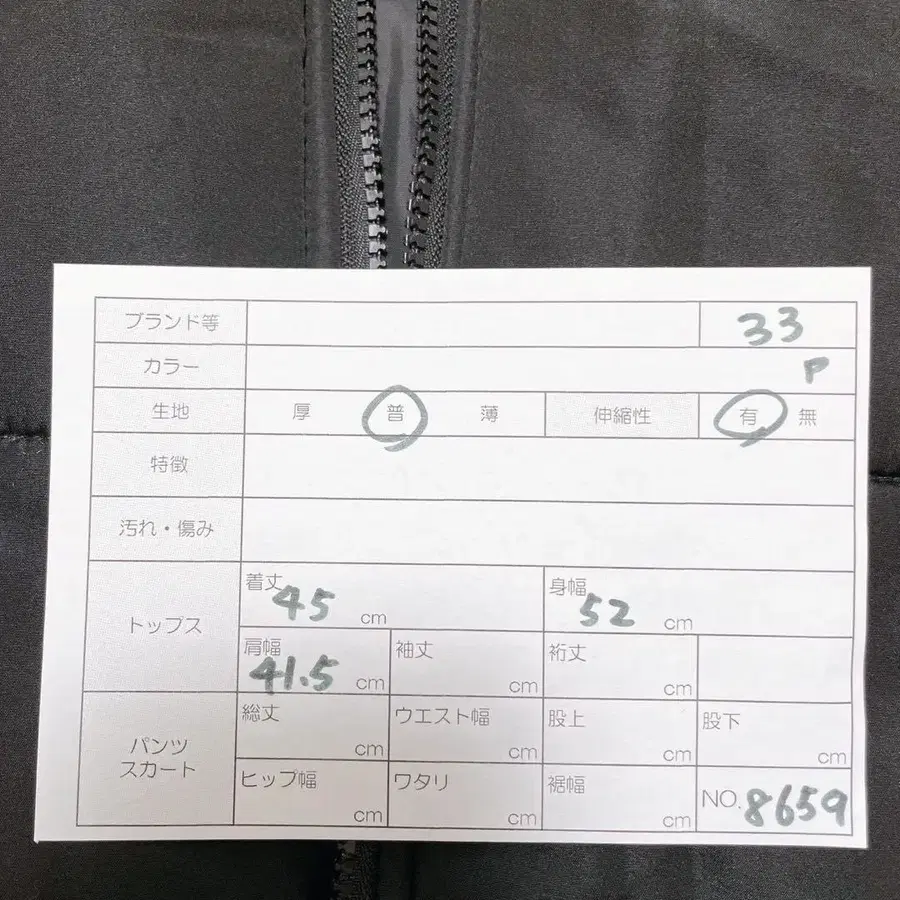 ブランド等 33
カラー P
生地 厚 普 薄 伸縮性 有 無
特徴
汚れ・傷み
トップス 着丈 45 cm 身幅 52 cm
肩幅 41.5 cm 袖丈 cm 裄丈 cm
パンツ スカート 総丈 cm ウエスト幅 cm 股上 cm 股下 cm
ヒップ幅 cm ワタリ cm 裾幅 cm NO. 8659